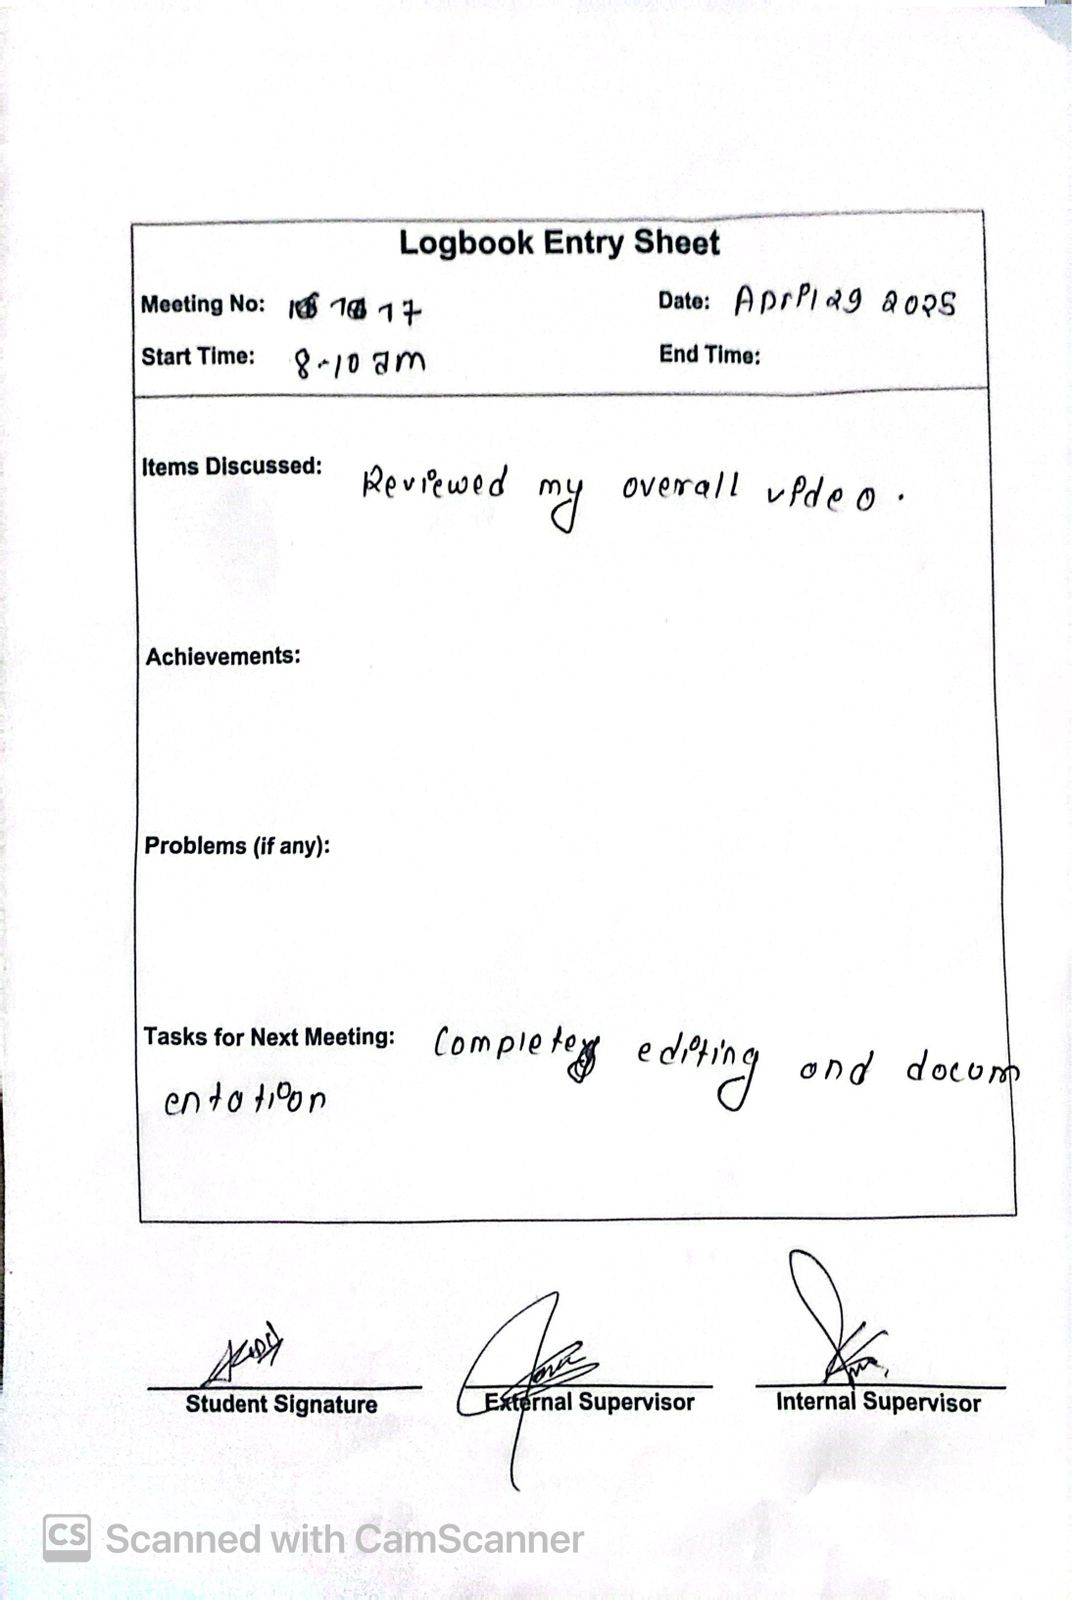 Logbook Entry Sheet
Meeting No: 17 Date: April 29 2025
Start Time: 8-10 am End Time:
Items Discussed: Reviewed my overall video.
Achievements:
Problems (if any):
Tasks for Next Meeting: Complete editing and docum
entation
Student Signature External Supervisor Internal Supervisor
CS Scanned with CamScanner